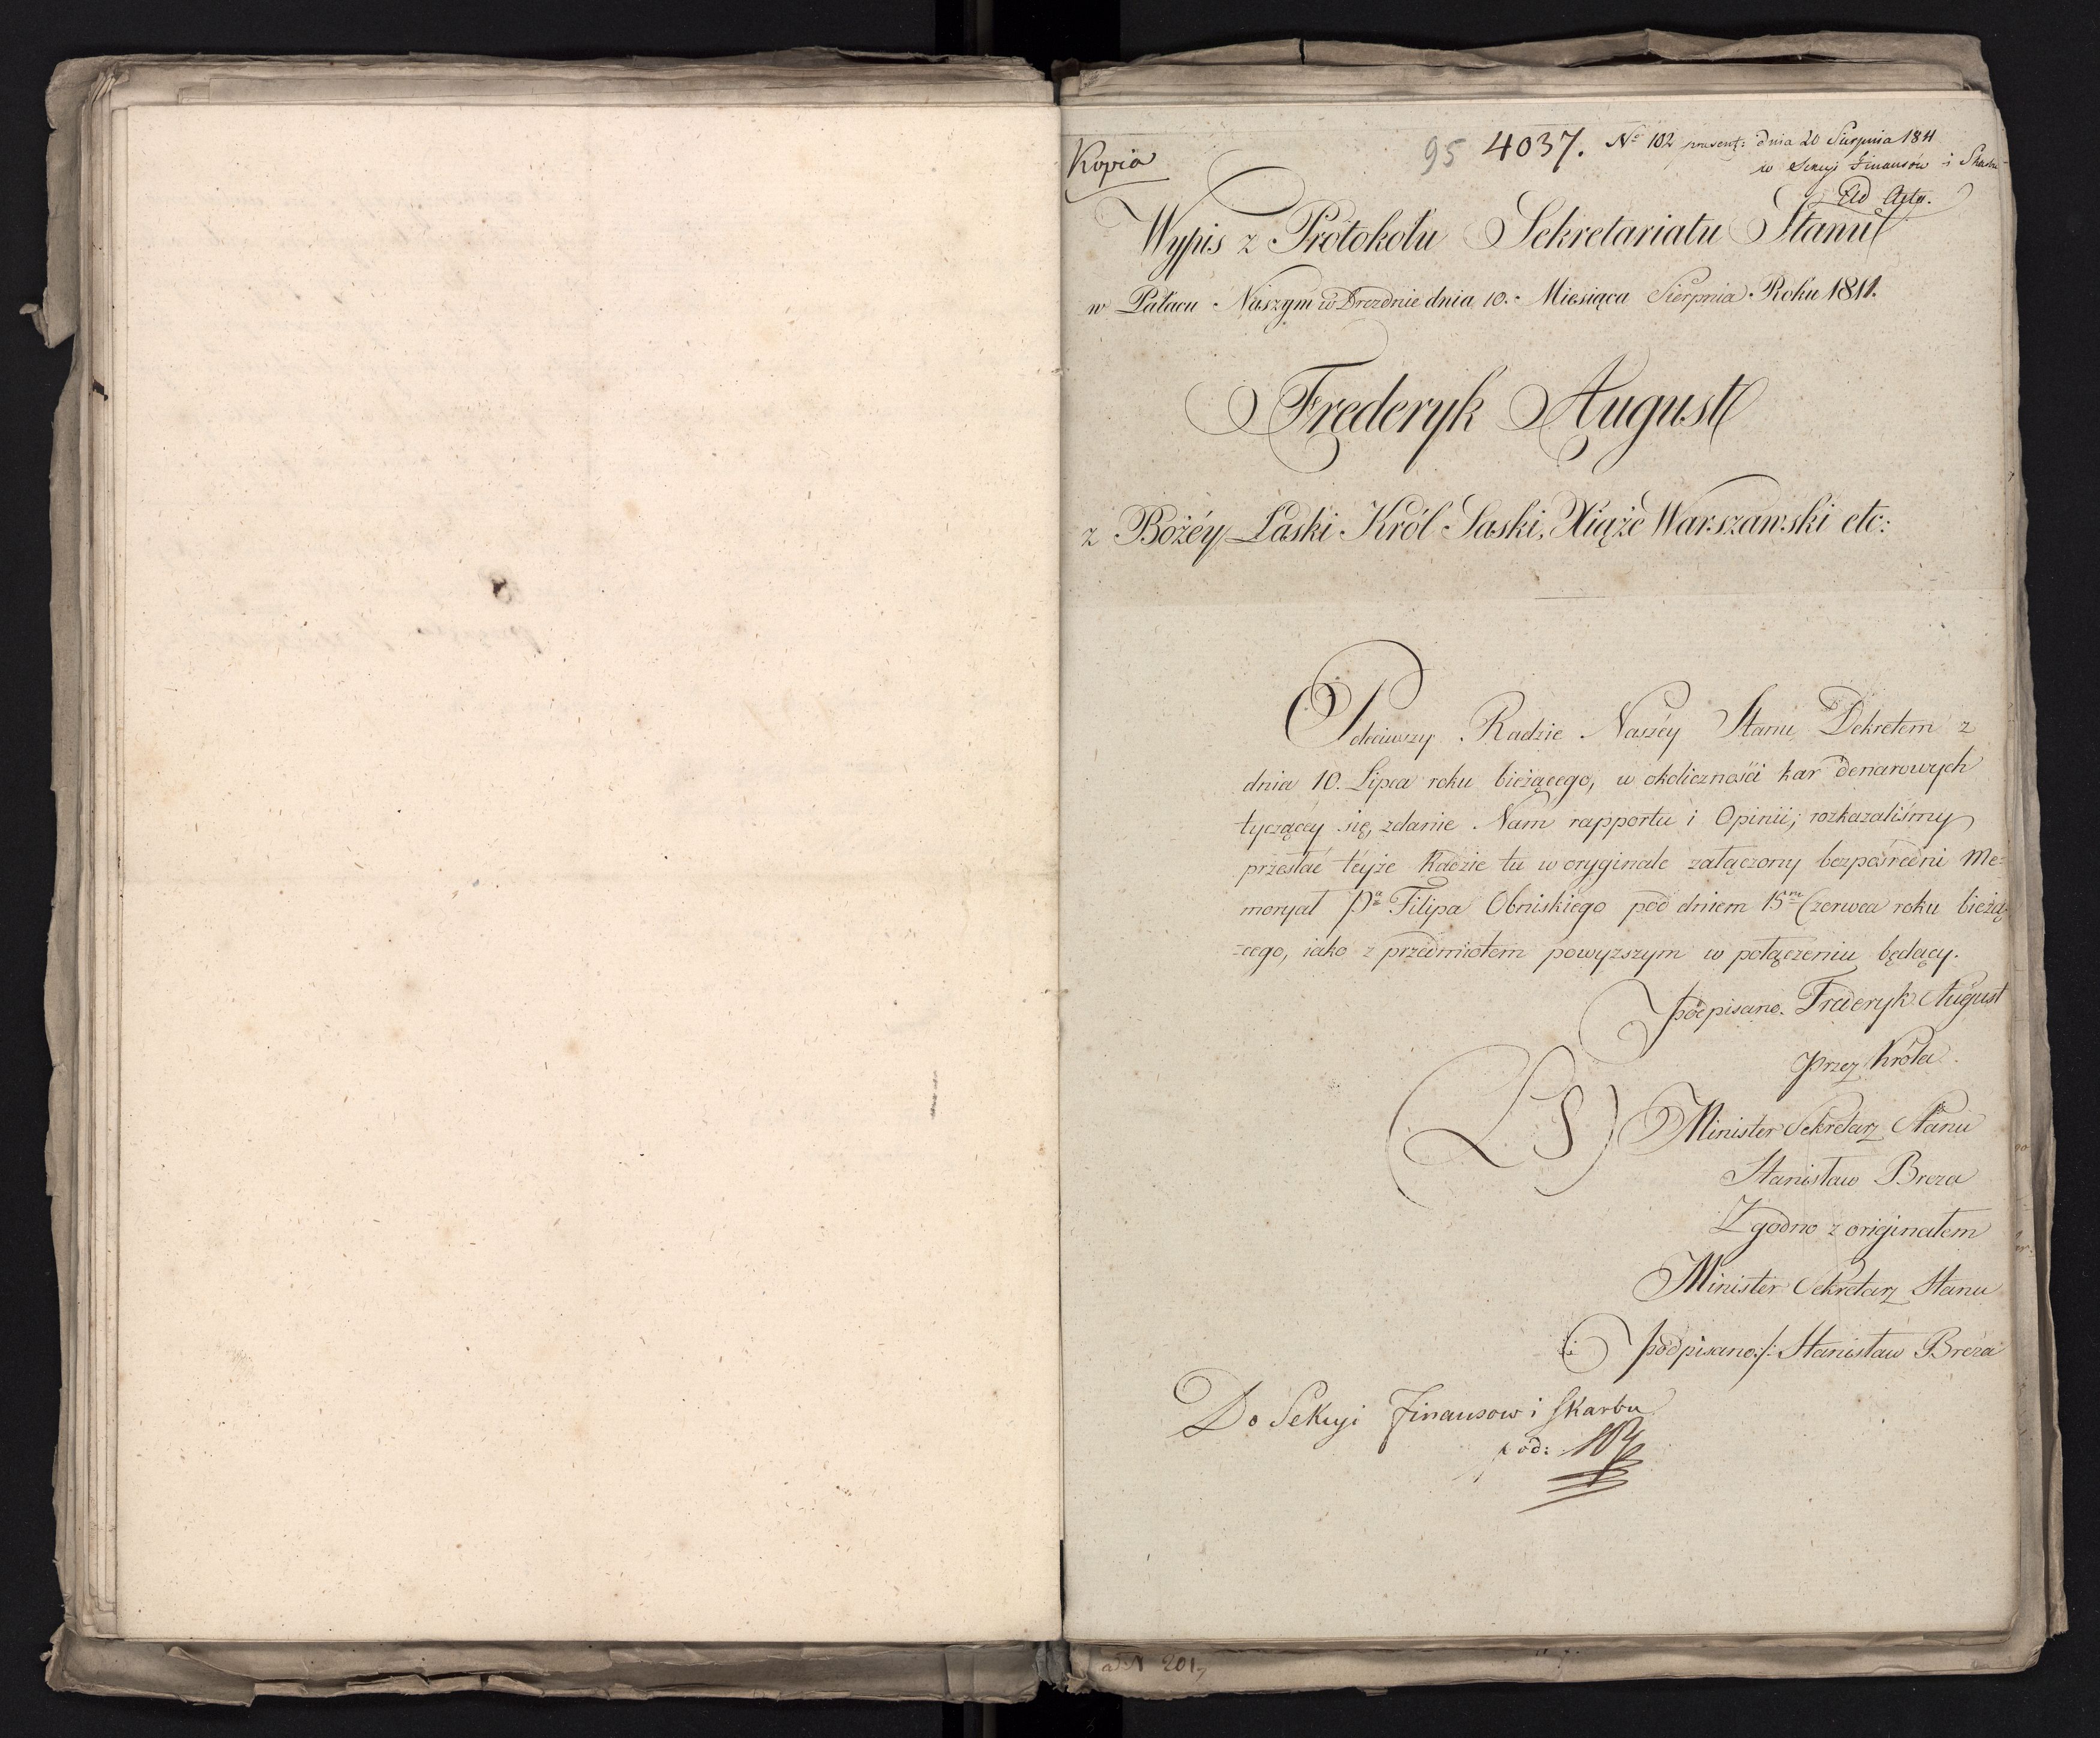 Kopia
95 4037. No 102 present: dnia 20 Sierpnia 1811
w Sekcyi Finansów i Skarbu
Ad Acta.
Wypis z Protokołu Sekretariatu Stanu
w Pałacu Naszym w Dreznie dnia 10. Miesiąca Sierpnia Roku 1811.
Frederyk August
z Bożéy Łaski Król Saski, Xiąże Warszawski etc:
Poleciwszy Radzie Naszéy Stanu Dekretem z
dnia 10. Lipca roku bieżącego, w okolicznośći kar denarowych
tyczącéy się, zdanie Nam rapportu i Opinii; rozkazaliśmy
przesłać téyże Radzie tu w oryginale załączony bezpośredni Me=
moryał Pa Filipa Obniskiego pod dniem 15m Czerwca roku bieżą
=cego, iako z przedmiotem powyższym w połączeniu będący.
podpisano. Frederyk August
przez Króla.
(LS) Minister Sekretarz Stanu
Stanisław Breza
Zgodno z originałem
Minister Sekretarz Stanu
podpisano:/: Stanisław Breza
Do Sekcyi Finansow i Skarbu
pod:
ad N 201,